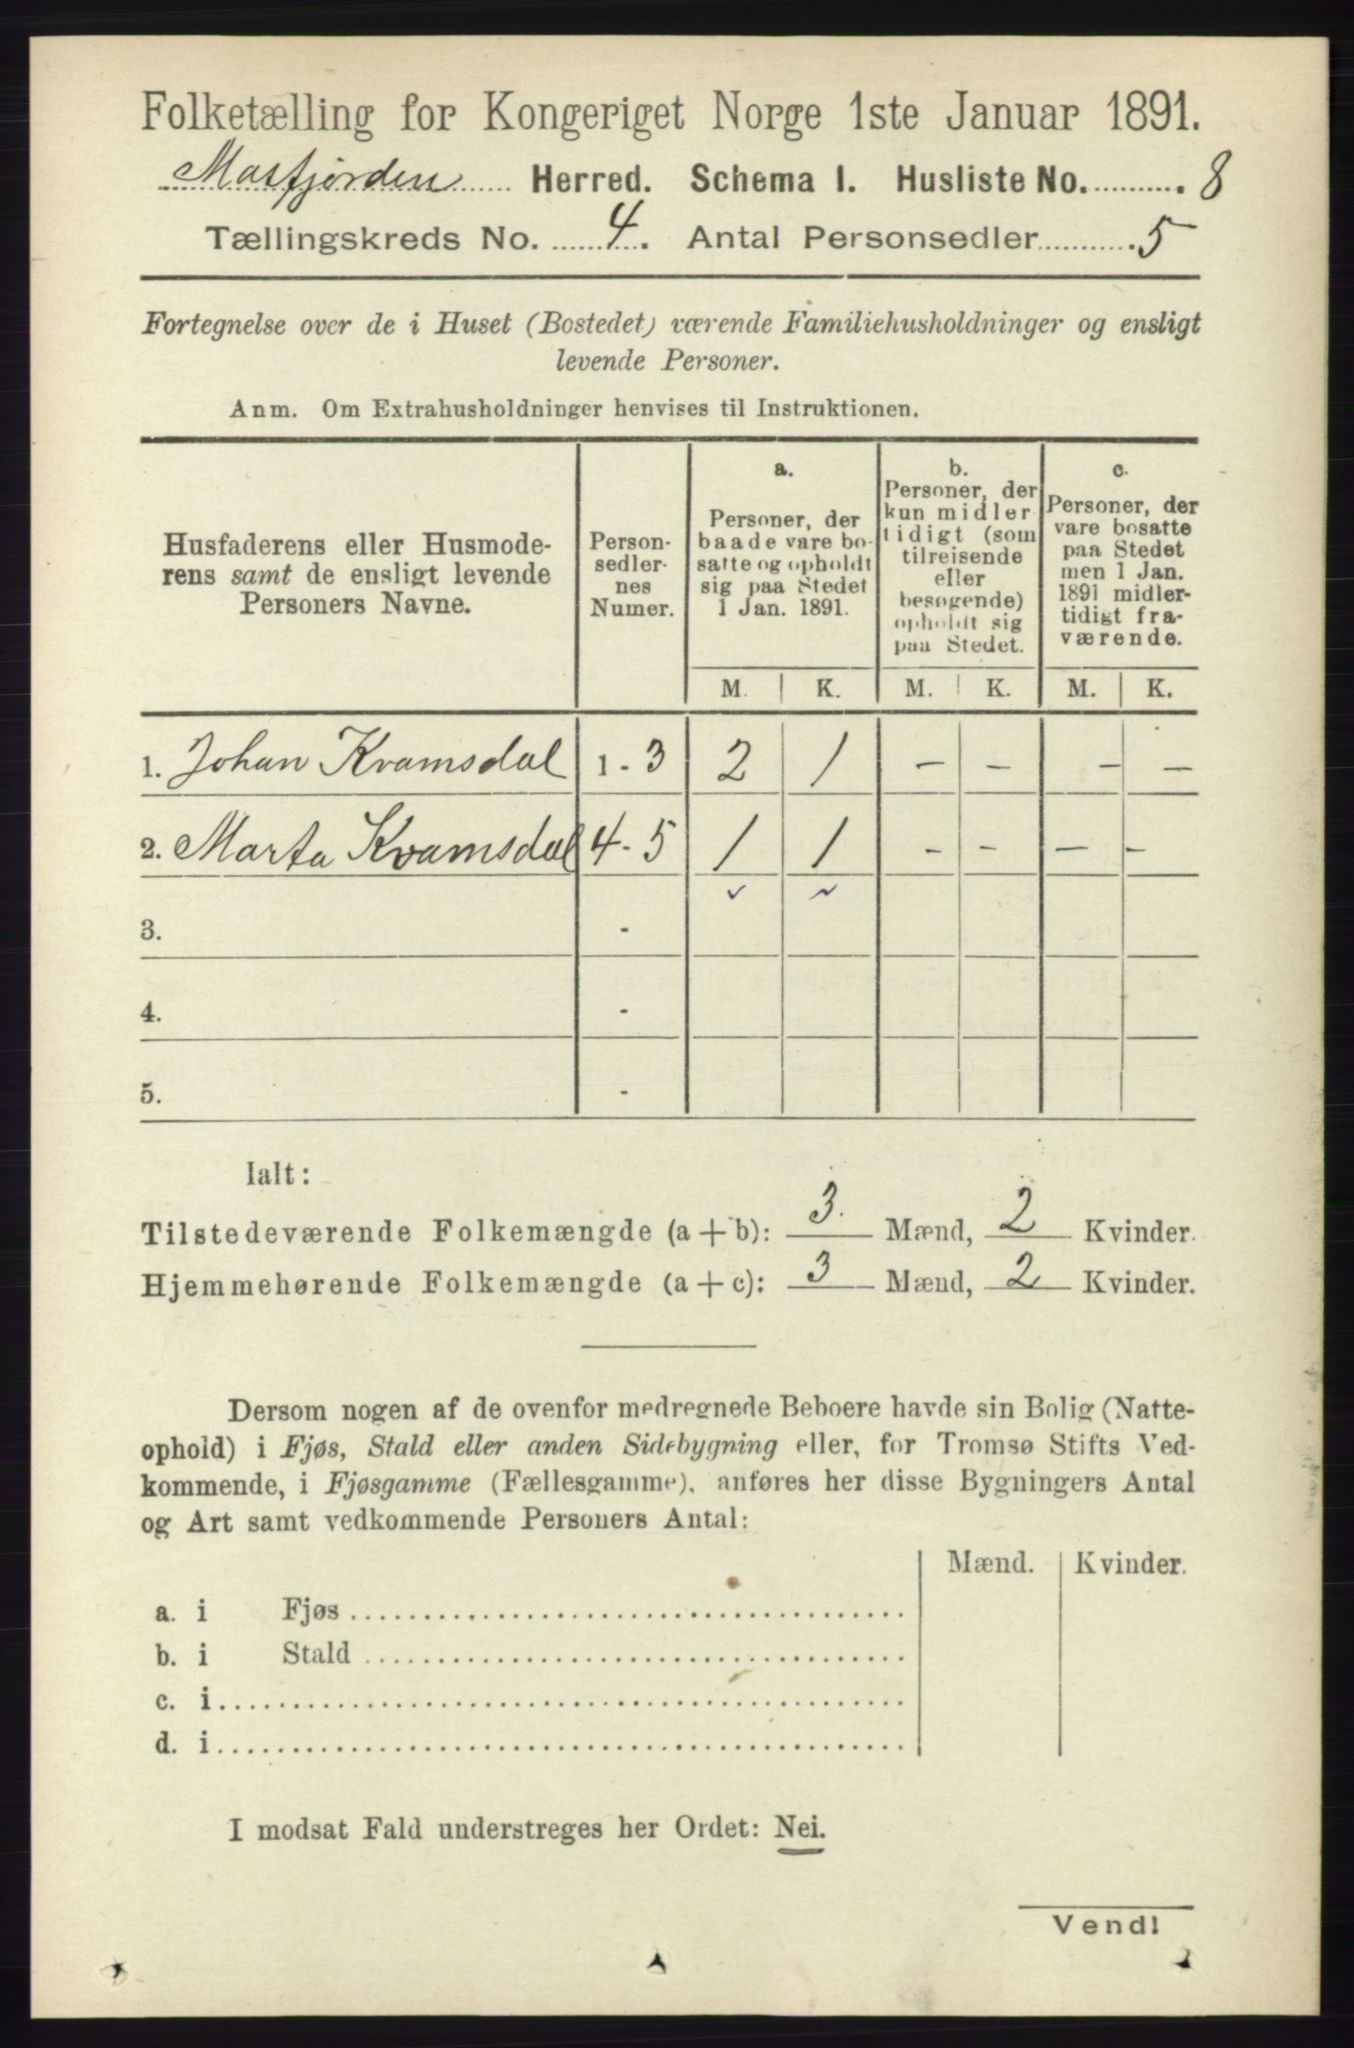 Folketælling for Kongeriget Norge 1ste Januar 1891.
Masfjorden Herred. Schema I. Husliste No. 8
Tællingskreds No. 4. Antal Personsedler 5
Fortegnelse over de i Huset (Bostedet) værende Familiehusholdninger og ensligt
levende Personer.
Anm. Om Extrahusholdninger henvises til Instruktionen.
Husfaderens eller Husmode-
rens samt de ensligt levende
Personers Navne.
Person-
sedler-
nes
Numer.
a.
Personer, der
baade vare bo-
satte og opholdt
sig paa Stedet
1 Jan. 1891.
b.
Personer, der
kun midler
tidigt (som
tilreisende
eller
besøgende)
opholdt sig
paa Stedet.
c.
Personer, der
vare bosatte
paa Stedet
men 1 Jan.
1891 midler-
tidigt fra-
værende.
M. K. M. K. M. K.
1. Johan Kvamsdal 1 - 3 2 1 - - - -
2. Marta Kvamsdal 4 - 5 1 1 - - - -
3. -
4. -
5. -
Ialt:
Tilstedeværende Folkemængde (a + b): 3. Mænd, 2 Kvinder.
Hjemmehørende Folkemængde (a + c): 3 Mænd, 2 Kvinder.
Dersom nogen af de ovenfor medregnede Beboere havde sin Bolig (Natte-
ophold) i Fjøs, Stald eller anden Sidebygning eller, for Tromsø Stifts Ved-
kommende, i Fjøsgamme (Fællesgamme), anføres her disse Bygningers Antal
og Art samt vedkommende Personers Antal:
Mænd. Kvinder.
a. i Fjøs
b. i Stald
c. i
d. i
I modsat Fald understreges her Ordet: Nei.
Vend!